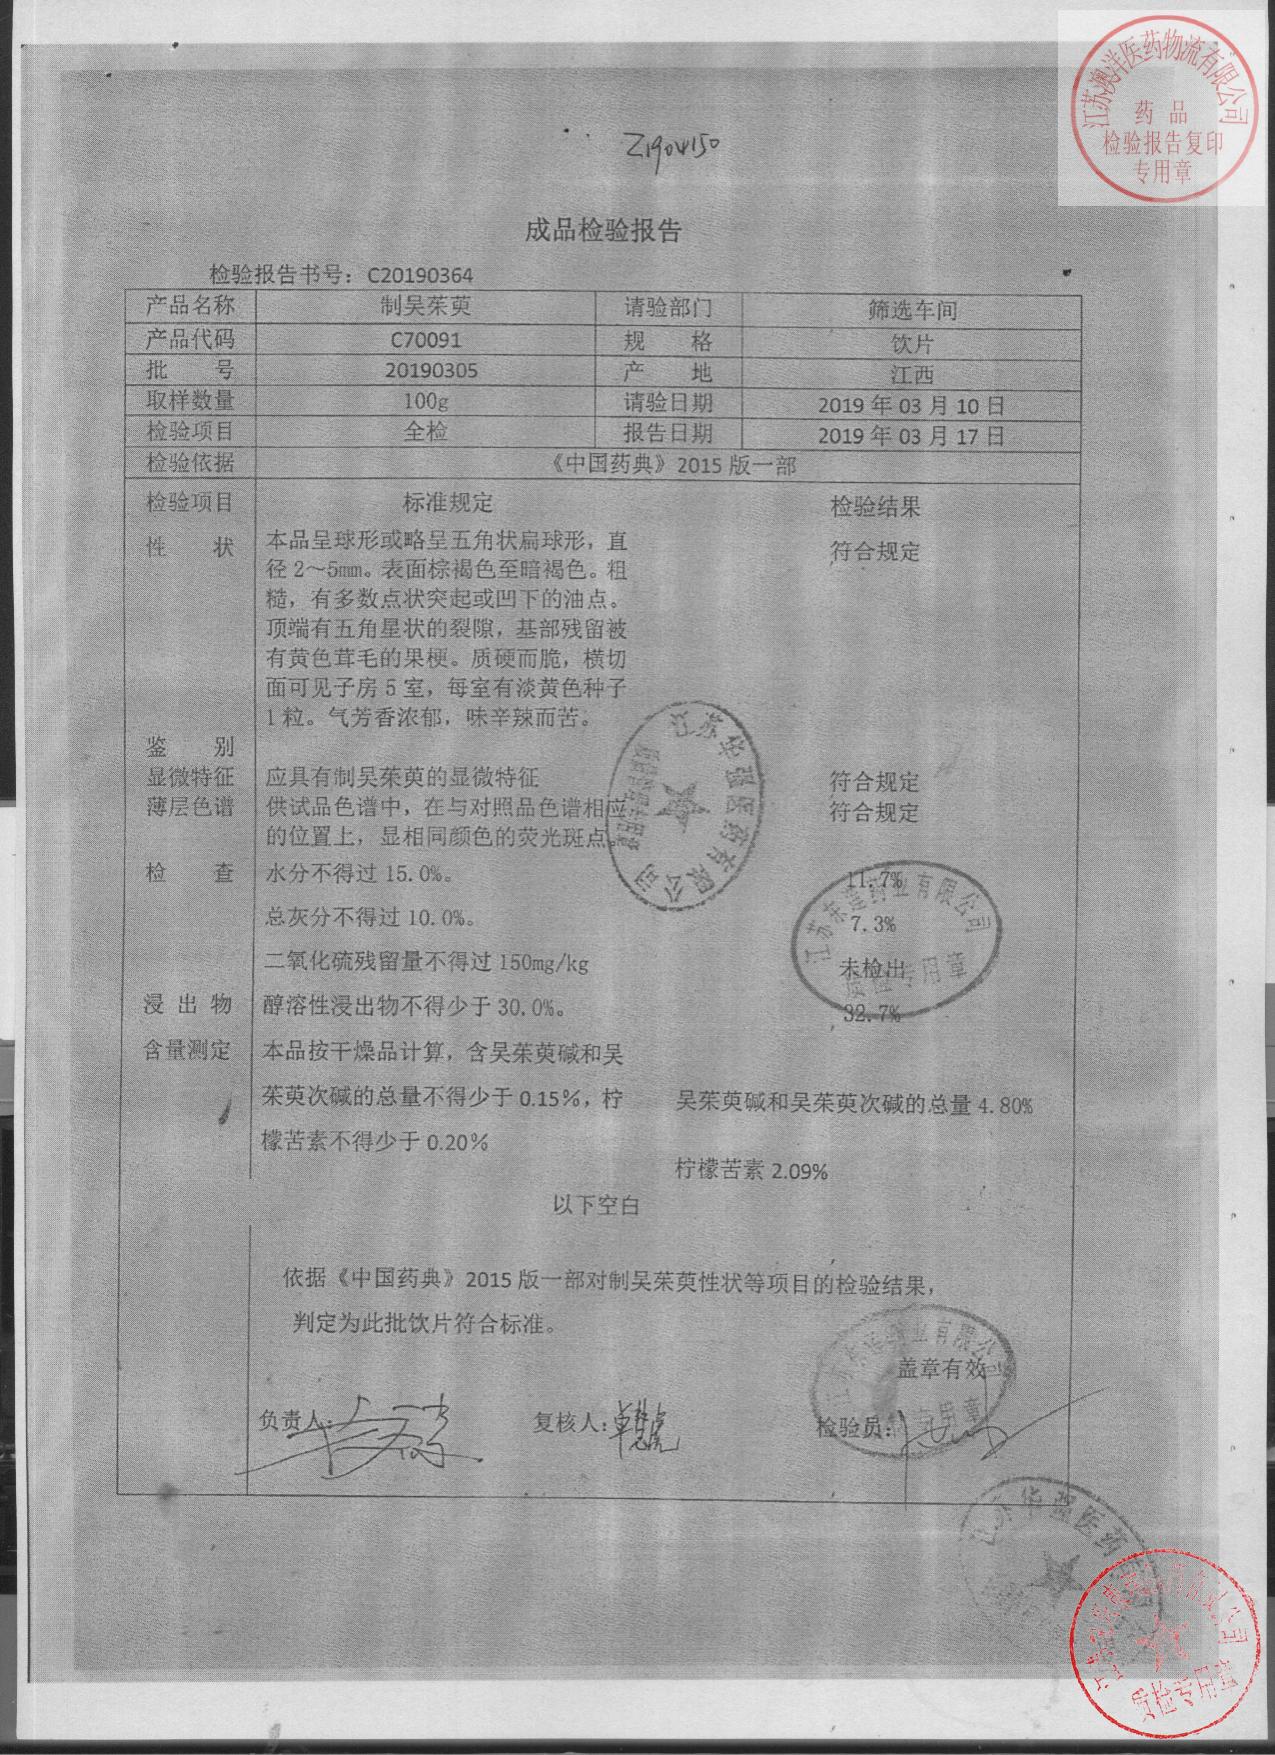 江苏澳洋医药物流有限公司
药品
检验报告复印
专用章
Z1904150
成品检验报告
检验报告书号：C20190364
产品名称 制吴茱萸 请验部门 筛选车间
产品代码 C70091 规 格 饮片
批 号 20190305 产 地 江西
取样数量 100g 请验日期 2019 年 03 月 10 日
检验项目 全检 报告日期 2019 年 03 月 17 日
检验依据 《中国药典》2015 版一部
检验项目 标准规定 检验结果
性 状 本品呈球形或略呈五角状扁球形，直 符合规定
径 2～5mm。表面棕褐色至暗褐色。粗
糙，有多数点状突起或凹下的油点。
顶端有五角星状的裂隙，基部残留被
有黄色茸毛的果梗。质硬而脆，横切
面可见子房 5 室，每室有淡黄色种子
1 粒。气芳香浓郁，味辛辣而苦。
鉴 别
显微特征 应具有制吴茱萸的显微特征 符合规定
薄层色谱 供试品色谱中，在与对照品色谱相应 符合规定
的位置上，显相同颜色的荧光斑点。
江苏华强医药有限公司
检 查 水分不得过 15.0%。 11.7%
总灰分不得过 10.0%。 7.3%
二氧化硫残留量不得过 150mg/kg 未检出
江苏 药业有限公司
专用章
浸 出 物 醇溶性浸出物不得少于 30.0%。 32.7%
含量测定 本品按干燥品计算，含吴茱萸碱和吴
茱萸次碱的总量不得少于 0.15%，柠 吴茱萸碱和吴茱萸次碱的总量 4.80%
檬苦素不得少于 0.20%
柠檬苦素 2.09%
以下空白
依据《中国药典》2015 版一部对制吴茱萸性状等项目的检验结果，
判定为此批饮片符合标准。
盖章有效
负责人： 复核人： 检验员：
专用章
江苏华强医药
质检专用章